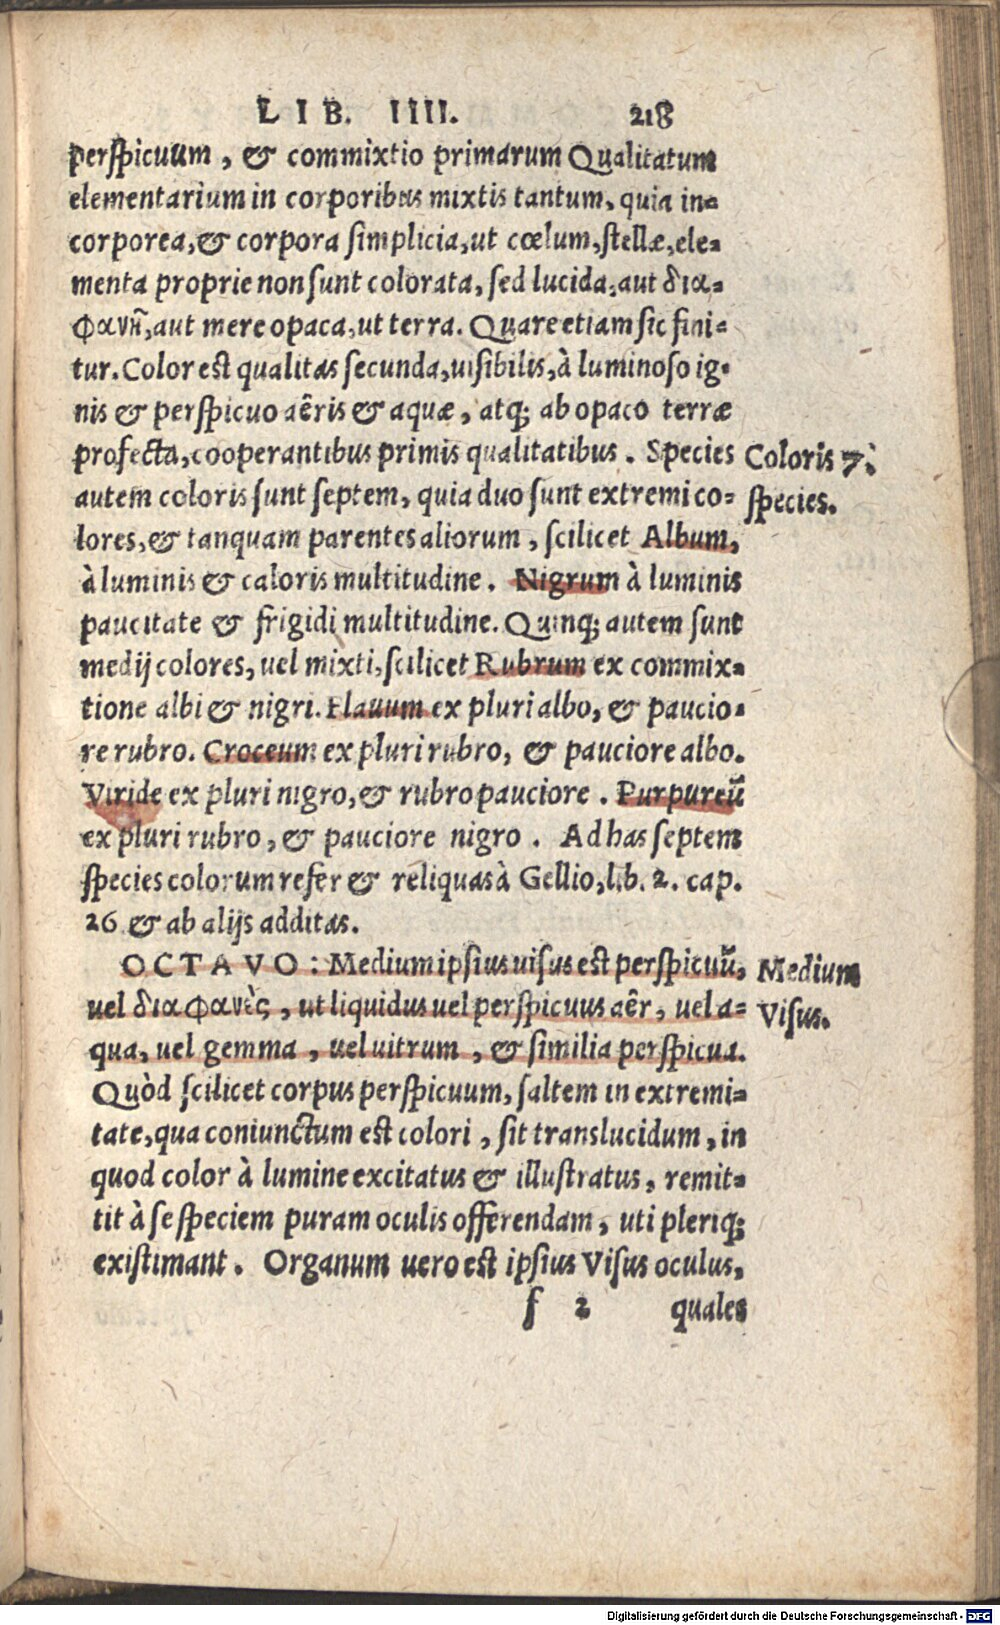 LIB. IIII. 218
perſpicuum, & commixtio primarum Qualitatum
elementarium in corporibus mixtis tantum, quia in=
corporea, & corpora ſimplicia, ut cœlum, ſtellæ, ele=
menta proprie non ſunt colorata, ſed lucida, aut δια=
φανῆ, aut mere opaca, ut terra. Quare etiam ſic fini=
tur. Color est qualitas ſecunda, uiſibilis, à luminoſo ig=
nis & perſpicuo aêris & aquæ, atq; ab opaco terræ
profecta, cooperantibus primis qualitatibus. Species
Coloris 7.
autem coloris ſunt ſeptem, quia duo ſunt extremi co=
ſpecies.
lores, & tanquam parentes aliorum, ſcilicet Album,
à luminis & caloris multitudine. Nigrum à luminis
paucitate & frigidi multitudine. Quinq; autem ſunt
medij colores, uel mixti, ſcilicet Rubrum ex commix=
tione albi & nigri. Flauum ex pluri albo, & paucio=
re rubro. Croceum ex pluri rubro, & pauciore albo.
Viride ex pluri nigro, & rubro pauciore. Purpureū
ex pluri rubro, & pauciore nigro. Ad has ſeptem
ſpecies colorum refer & reliquas à Gellio, lib. 2. cap.
26 & ab alijs additas.
OCTAVO: Medium ipſius uiſus est perſpicuū,
Medium
uel διαφανὲς, ut liquidus uel perſpicuus aêr, uel a=
Viſus.
qua, uel gemma, uel uitrum, & ſimilia perſpicua.
Quòd ſcilicet corpus perſpicuum, ſaltem in extremi=
tate, qua coniunctum est colori, ſit translucidum, in
quod color à lumine excitatus & illuſtratus, remit=
tit à ſe ſpeciem puram oculis offerendam, uti pleriq;
existimant. Organum uero est ipſius Viſus oculus,
f 2 quales
Digitalisierung gefördert durch die Deutsche Forschungsgemeinschaft - DFG